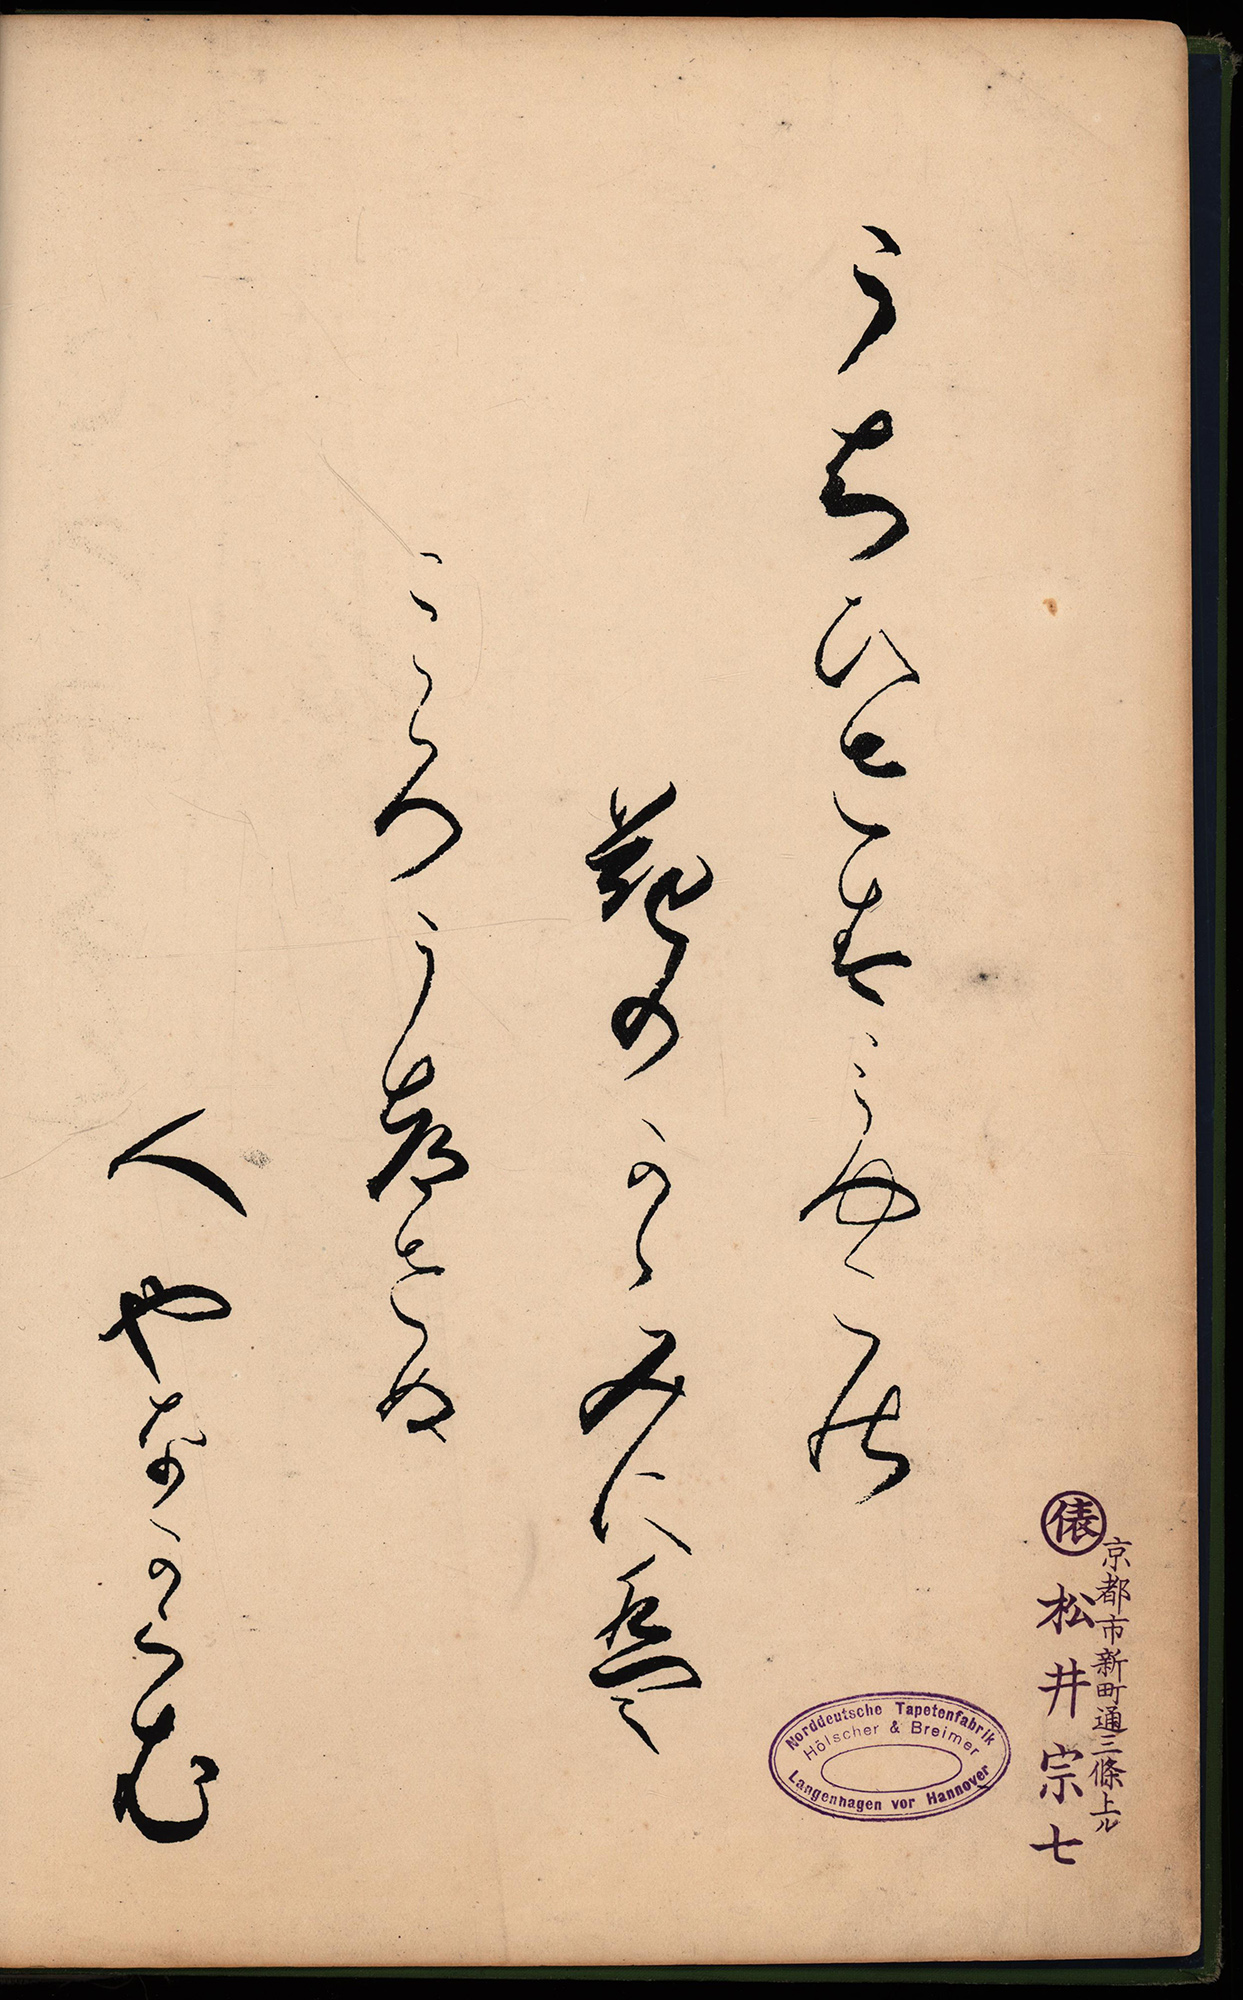 うちひさすみやこの
花のかゝみには
こゝろうつさぬ
人やなからむ
京都市新町通三條上ル
俵 松井宗七
Norddeutsche Tapetenfabrik
Hölscher & Breimer
Langenhagen vor Hannover